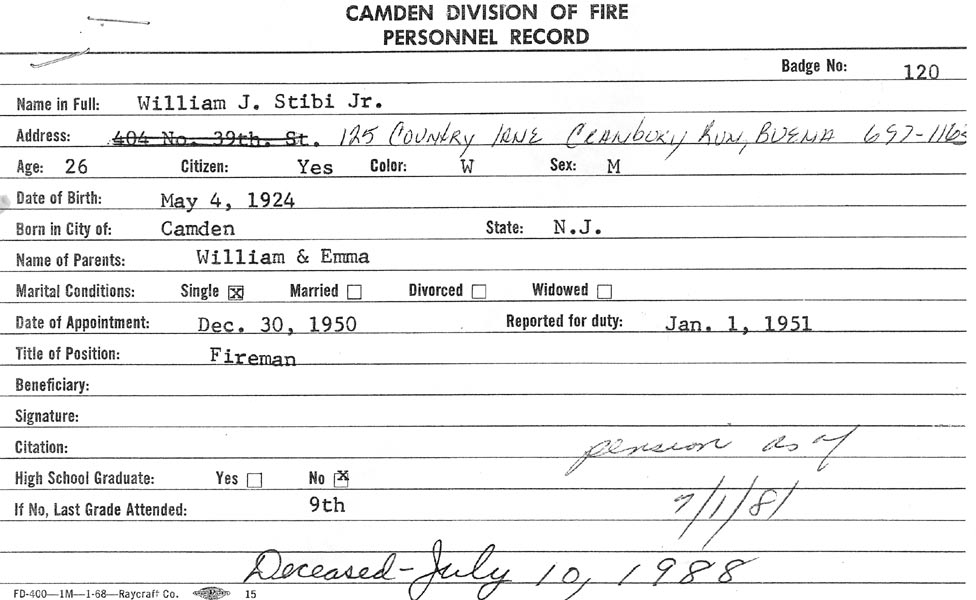 CAMDEN DIVISION OF FIRE
PERSONNEL RECORD
Badge No: 120
Name in Full: William J. Stibi Jr.
Address: 404 No. 39th. St. 125 COUNTRY LANE CRANBURY RUN, BUENA 697-1163
Age: 26 Citizen: Yes Color: W Sex: M
Date of Birth: May 4, 1924
Born in City of: Camden State: N.J.
Name of Parents: William & Emma
Marital Conditions: Single ☒ Married ☐ Divorced ☐ Widowed ☐
Date of Appointment: Dec. 30, 1950 Reported for duty: Jan. 1, 1951
Title of Position: Fireman
Beneficiary:
Signature:
Citation: pension as of
High School Graduate: Yes ☐ No ☒
If No, Last Grade Attended: 9th 7/1/81
Deceased-July 10, 1988
FD-400—1M—1-68—Raycraft Co. 15